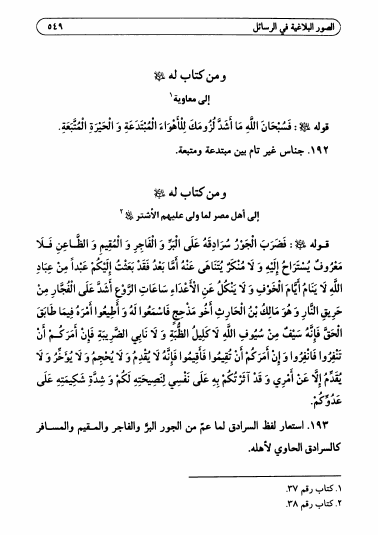 الصور البلاغية في الرسائل ٥٤٩
ومن كتاب له ﷺ
إلى معاوية١
قوله ﷺ: فَسُبْحَانَ اللَّهِ مَا أَشَدَّ لُزُومَكَ لِلْأَهْوَاءِ الْمُبْتَدَعَةِ وَ الْحَيْرَةِ الْمُتَّبَعَةِ.
١٩٢. جناس غير تام بين مبتدعة ومتبعة.
ومن كتاب له ﷺ
إلى أهل مصر لما ولى عليهم الأشتر ٢
قوله ﷺ: فَضَرَبَ الْجَوْرُ سُرَادِقَهُ عَلَى الْبَرِّ وَ الْفَاجِرِ وَ الْمُقِيمِ وَ الظَّاعِنِ فَلَا
مَعْرُوفٌ يُسْتَرَاحُ إِلَيْهِ وَ لَا مُنْكَرٌ يُتَنَاهَى عَنْهُ أَمَّا بَعْدُ فَقَدْ بَعَثْتُ إِلَيْكُمْ عَبْداً مِنْ عِبَادِ
اللَّهِ لَا يَنَامُ أَيَّامَ الْخَوْفِ وَ لَا يَنْكُلُ عَنِ الْأَعْدَاءِ سَاعَاتِ الرَّوْعِ أَشَدَّ عَلَى الْفُجَّارِ مِنْ
حَرِيقِ النَّارِ وَ هُوَ مَالِكُ بْنُ الْحَارِثِ أَخُو مَذْحِجٍ فَاسْمَعُوا لَهُ وَ أَطِيعُوا أَمْرَهُ فِيمَا طَابَقَ
الْحَقَّ فَإِنَّهُ سَيْفٌ مِنْ سُيُوفِ اللَّهِ لَا كَلِيلُ الظُّبَةِ وَ لَا نَابِي الضَّرِيبَةِ فَإِنْ أَمَرَكُمْ أَنْ
تَنْفِرُوا فَانْفِرُوا وَ إِنْ أَمَرَكُمْ أَنْ تُقِيمُوا فَأَقِيمُوا فَإِنَّهُ لَا يُقْدِمُ وَ لَا يُحْجِمُ وَ لَا يُؤَخِّرُ وَ لَا
يُقَدِّمُ إِلَّا عَنْ أَمْرِي وَ قَدْ آثَرْتُكُمْ بِهِ عَلَى نَفْسِي لِنَصِيحَتِهِ لَكُمْ وَ شِدَّةِ شَكِيمَتِهِ عَلَى
عَدُوِّكُمْ.
١٩٣. استعار لفظ السرادق لما عمّ من الجور البرَّ والفاجر والمقيم والمسافر
كالسرادق الحاوي لأهله.
١. كتاب رقم ٣٧.
٢. كتاب رقم ٣٨.